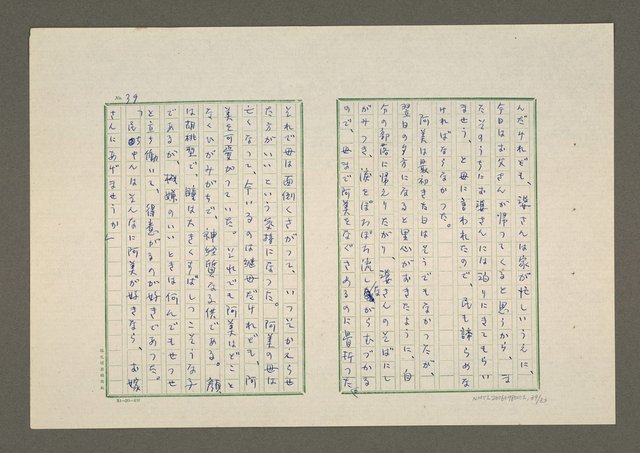 んだけれども、婆さんは家が忙しいうえに、
今日はお父さんが帰ってくると思うから、ま
たそのうちにお婆さんには泊りにきてもらい
ませう、と母に言われたので、民も諦らめな
ければならなかった。
阿美は最初きた日はそうでもなかったが、
翌日の夕方になると里心がおきたように、自
分の部落に帰えりたがり、婆さんのそばにし
がみつき、涙をぽろぽろ流しながらむづかる
ので、母まで阿美をなぐさめるのに骨折った。
No. 39
それで母は面倒くさがって、いっそかえらせ
た方がいいという気持になった。阿美の母は
亡くなって、今いるのは継母だけれども、阿
美を可愛がっていた。それでも阿美はどこと
なくひがみがちで、神経質な子供である。顔
は胡桃型で、瞳は大きくすばしっこそうな子
であるが、機嫌のいいときは何んでもせっせ
と立ち働いて、得意がるのが好きであった。
「民さんはそんなに阿美が好きなら、お嫁
さんにあげませうか」